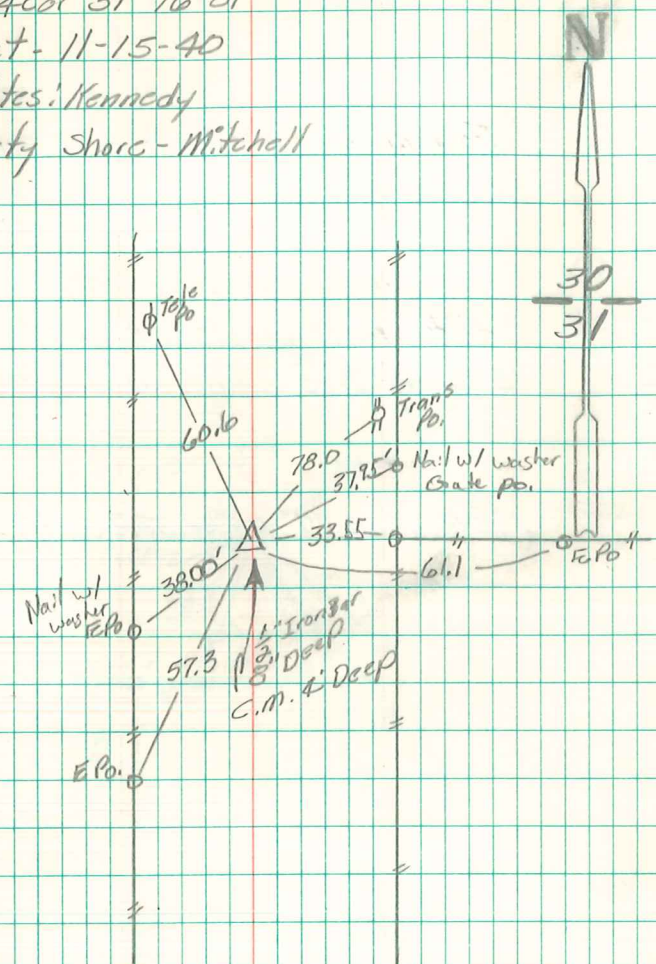 11-15-40
Kennedy
Shore - Mitchell
N
30
31
Tele
Po
60.6
Trans
Po.
78.0
37.95'
Nail w/ washer
Gate po.
33.55
61.1
E Po
38.00'
Nail w/
washer
E Po
57.3
1/2" Iron Bar
8" Deep
C.M. 4' Deep
E Po.